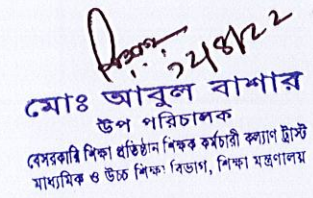 ২৪/৪/২২
মোঃ আবুল বাশার
উপ পরিচালক
বেসরকারি শিক্ষা প্রতিষ্ঠান শিক্ষক কর্মচারী কল্যাণ ট্রাস্ট
মাধ্যমিক ও উচ্চ শিক্ষা বিভাগ, শিক্ষা মন্ত্রণালয়